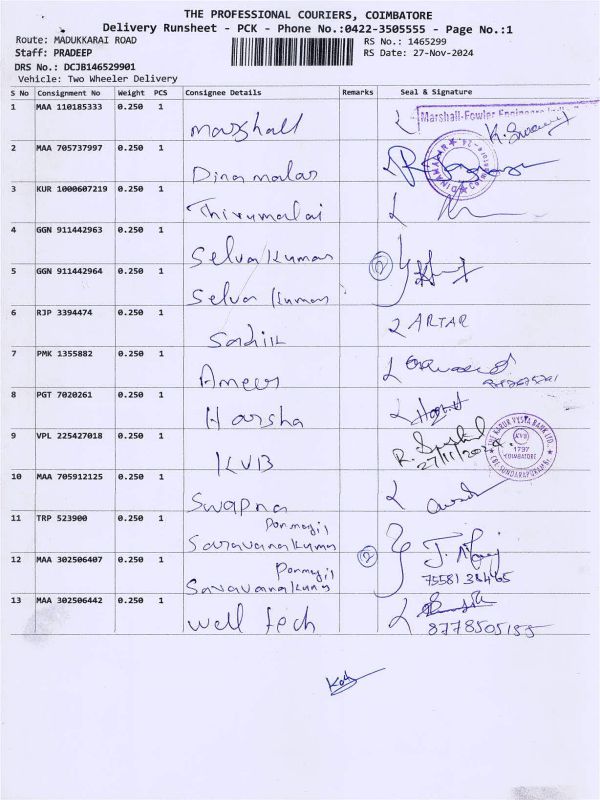 THE PROFESSIONAL COURIERS, COIMBATORE
Delivery Runsheet - PCK - Phone No.:0422-3505555 - Page No.:1
Route: MADUKKARAI ROAD
RS No.: 1465299
Staff: PRADEEP
RS Date: 27-Nov-2024
DRS No.: DCJB146529901
Vehicle: Two Wheeler Delivery
S No Consignment No Weight PCS Consignee Details Remarks Seal & Signature
1 MAA 110185333 0.250 1 Marshall Marshall-Fowler Engineers K. Swamy
2 MAA 705737997 0.250 1 Dinamalar DINAMALAR
3 KUR 1000607219 0.250 1 Thirumalai
4 GGN 911442963 0.250 1 Selva Kumar 2
5 GGN 911442964 0.250 1 Selva Kumar
6 RJP 3394474 0.250 1 Sadiik ARTAR
7 PMK 1355882 0.250 1 Ameer
8 PGT 7020261 0.250 1 Harsha
9 VPL 225427018 0.250 1 KVB 27/11/2024 THE KARUR VYSYA BANK LTD. KVB 1797 COIMBATORE CBE. SUNDARAPURAM BR.
10 MAA 705912125 0.250 1 Swapna
11 TRP 523900 0.250 1 Saravana Kumar 2
12 MAA 302506407 0.250 1 Saravana Kumar
13 MAA 302506442 0.250 1 well tech 8778505155